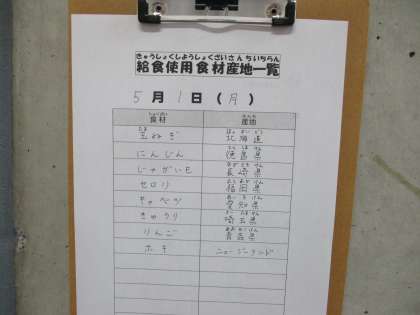 きゅうしょくしようしょくざいさんちいちらん
給食使用食材産地一覧
5月1日(月)
食材 産地
玉ねぎ 北海道
にんじん 徳島県
じゃがいも 長崎県
セロリ 福岡県
キャベツ 愛知県
きゅうり 埼玉県
りんご 青森県
ホキ ニュージーランド